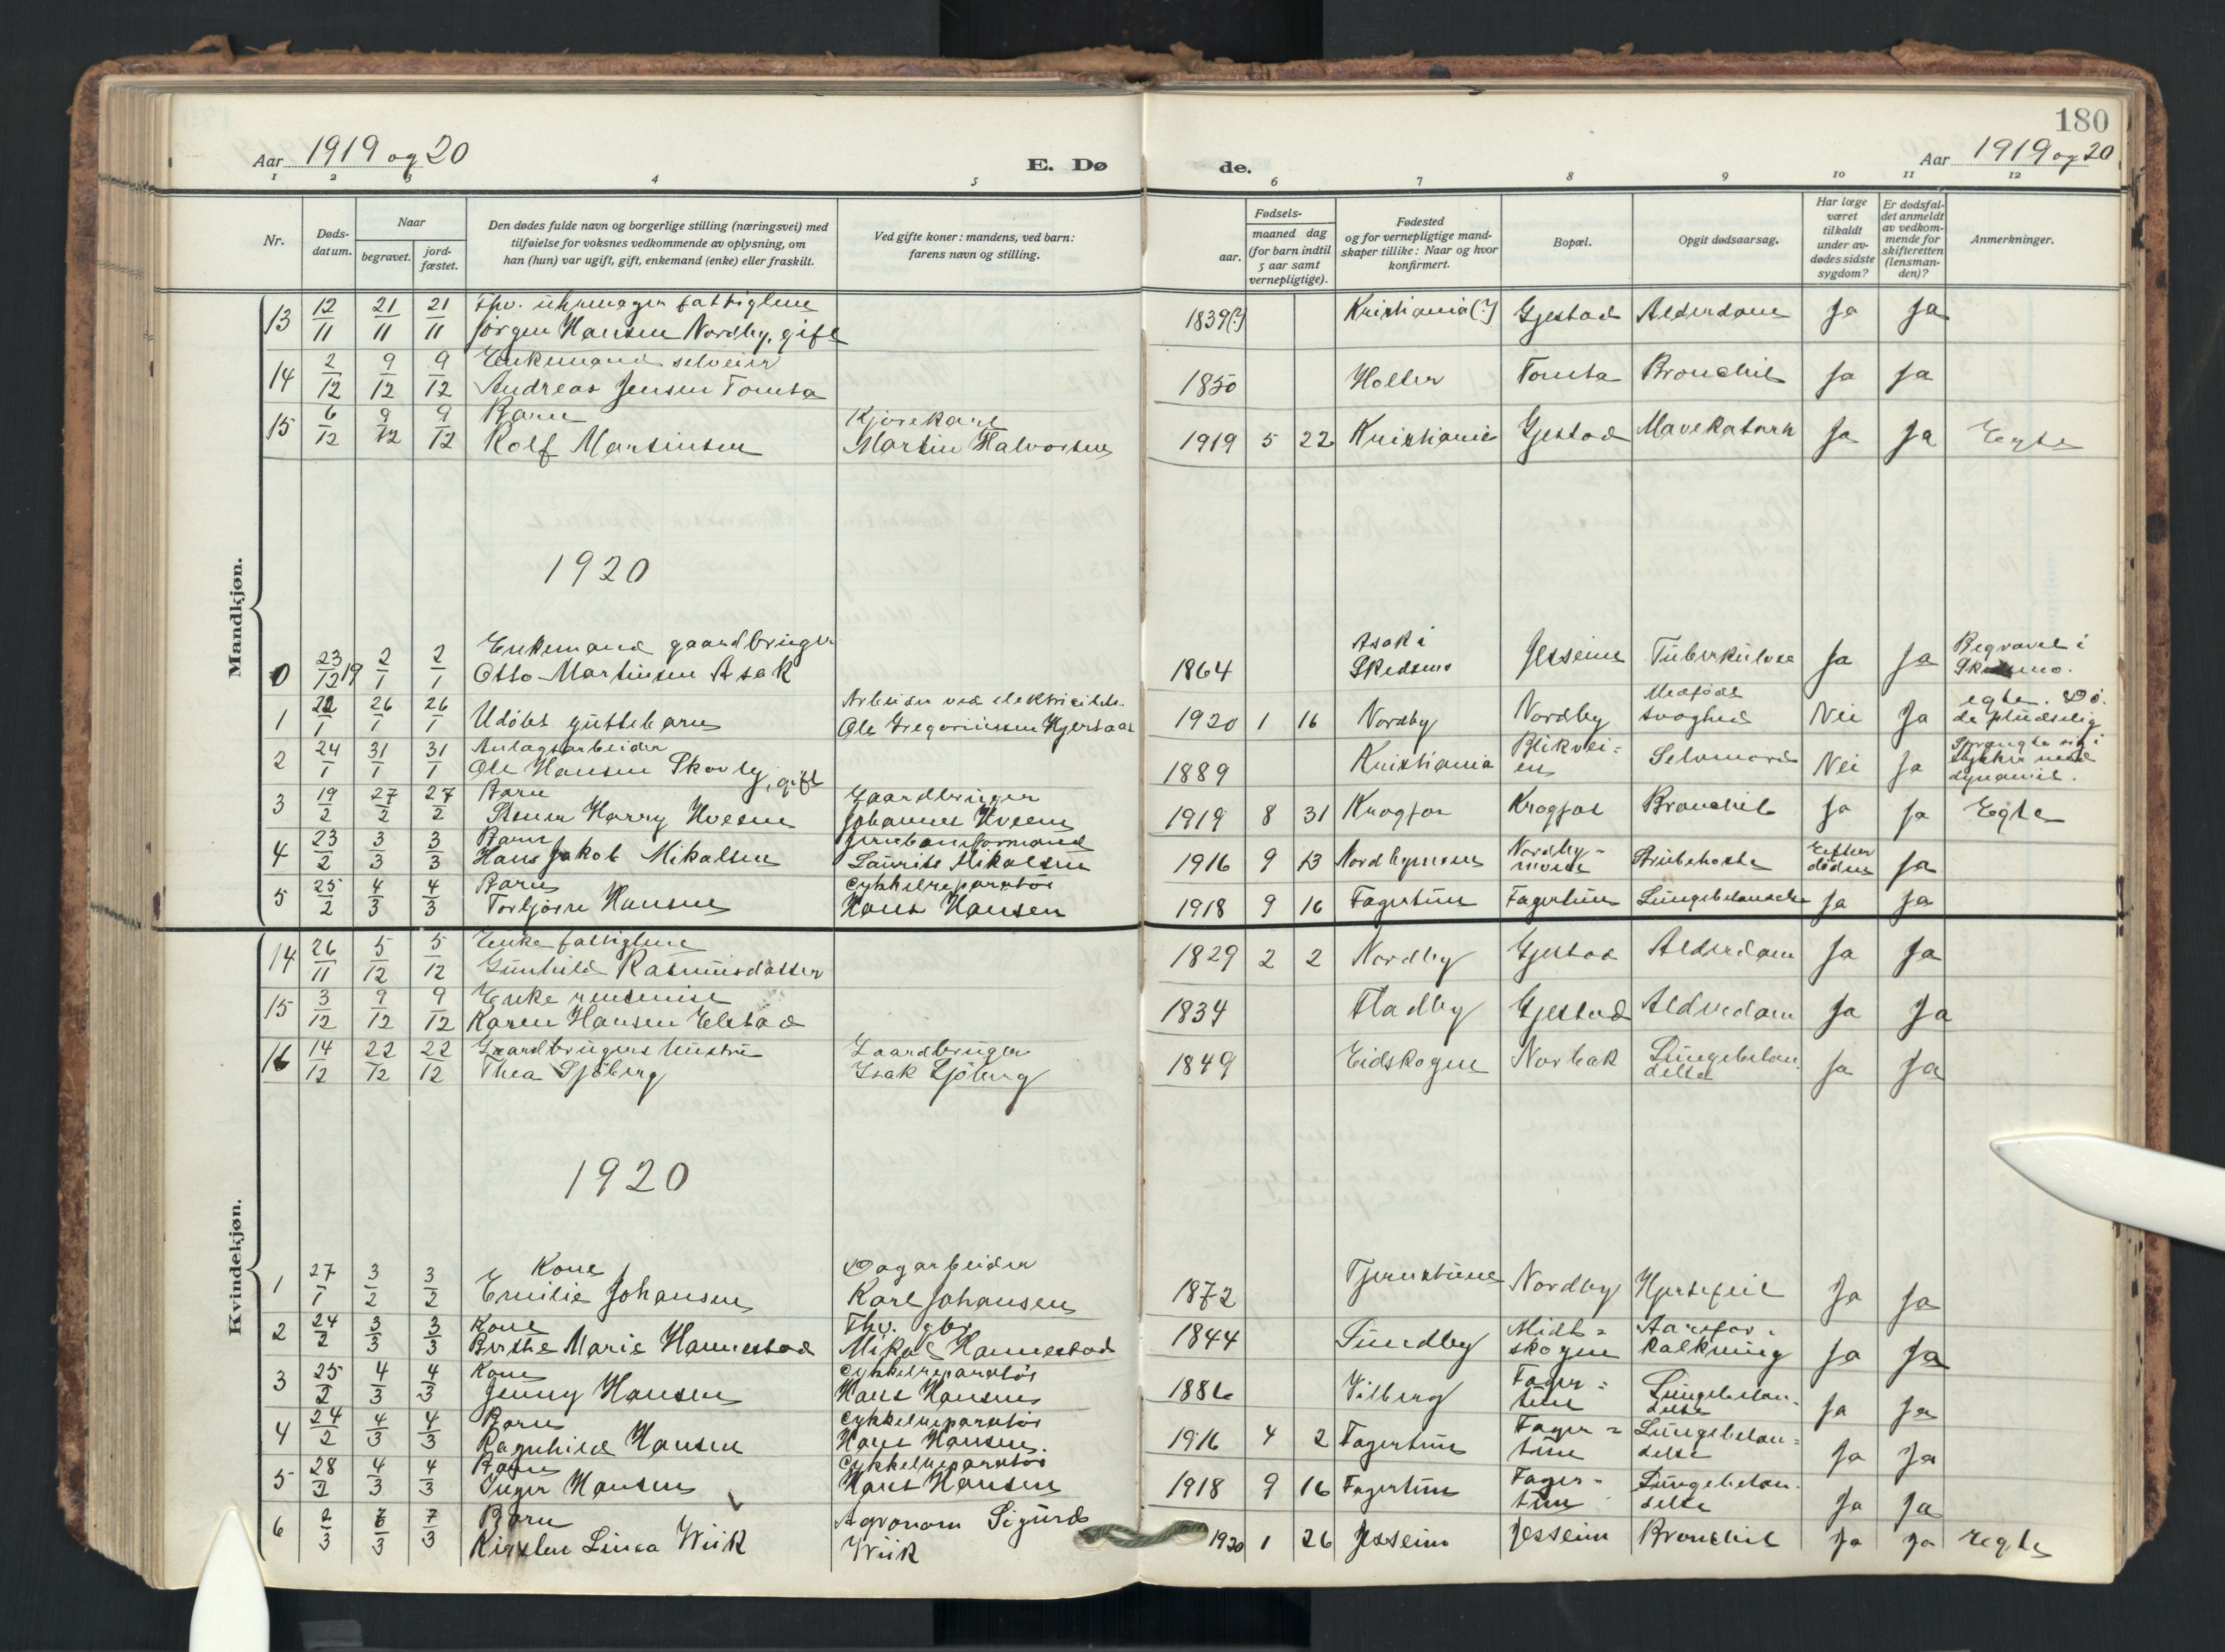 180
Aar 1919 og 20
E. Døde.
Aar 1919 og 20
1 2 3 4 5 6 7 8 9 10 11 12
Nr.
Døds-
datum.
Naar
begravet.
jord-
fæstet.
Den dødes fulde navn og borgerlige stilling (næringsvei) med
tilføielse for voksnes vedkommende av oplysning, om
han (hun) var ugift, gift, enkemand (enke) eller fraskilt.
Ved gifte koner: mandens, ved barn:
farens navn og stilling.
Fødsels-
aar.
maaned dag
(for barn indtil
5 aar samt
vernepligtige).
Fødested
og for vernepligtige mand-
skaper tillike: Naar og hvor
konfirmert.
Bopæl.
Opgit dødsaarsag.
Har læge
været
tilkaldt
under av-
dødes sidste
sygdom?
Er dødsfal-
det anmeldt
av vedkom-
mende for
skifteretten
(lensman-
den)?
Anmerkninger.
Mandkjøn.
13 12/11 21/11 21/11 Fhv. uhrmager fattiglem
Jörgen Hansen Nordby, gift 1839(?) Kristiania(?) Gjestad Alderdom Ja Ja
14 2/12 9/12 9/12 Enkemand selveier
Andreas Jensen Tomta 1850 Holter Tomta Bronchit Ja Ja
15 6/12 9/12 9/12 Barn Kjörekarl
Rolf Martinsen Martin Halvorsen 1919 5 22 Kristiania Gjestad Mavekatarh Ja Ja Egte
1920
0 23/12 19 2/1 2/1 Enkemand gaardbruger
Otto Martinsen Asak 1864 Asak i
Skedsmo Jesseim Tuberkulose Ja Ja Begravet i
Skedsmo.
1 22/1 26/1 26/1 Udöbt guttebarn Arbeider ved elektricitets.
Ole Gregoriussen Kjersaas 1920 1 16 Nordby Nordby Medfödt
svaghed Nei Ja egte. Dö-
de pludselig
2 24/1 31/1 31/1 Anlagsarbeider
Ole Hansen Skovly, gift 1889 Kristiania Blikvei-
en Selvmord Nei Ja Sprængte sig i
stykker med
dynamit.
3 19/2 27/2 27/2 Barn Gaardbruger
Harry Hveem Johannes Hveem 1919 8 31 Krogfos Krogfos Bronchit Ja Ja Egte
4 23/2 3/3 3/3 Barn Jernbaneformand
Hans Jakob Mikalsen Laurits Mikalsen 1916 9 13 Nordbymoen Nordby-
moen Strubehoste Efter
döden Ja
5 25/2 4/3 4/3 Barn Cykkelreparatör
Torbjörn Hansen Hans Hansen 1918 9 16 Fagertun Fagertun Lungebetændelse Ja Ja
Kvindekjøn.
14 26/11 5/12 5/12 Enke fattiglem
Gunhild Rasmusdatter 1829 2 2 Nordby Gjestad Alderdom Ja Ja
15 3/12 9/12 9/12 Enke
Karen Hansen Elstad 1834 Fladby Gjestad Alderdom Ja Ja
16 14/12 22/12 22/12 Gaardbrugers hustru Gaardbruger
Thea Sjöberg Isak Sjöberg 1849 Eidskogen Norbak Lungebetæn-
delse Ja Ja
1920
1 27/1 3/2 3/2 Kone Dagarbeider
Emilie Johansen Karl Johansen 1872 Tjernstuen Nordby Hjertefeil Ja Ja
2 24/2 3/3 3/3 Kone Fhv. gbr.
Berthe Marie Hannestad Mikal Hannestad 1844 Sundby Midt-
skogen Aarefor-
kalkning Ja Ja
3 25/2 4/3 4/3 Kone Cykkelreparatör
Jenny Hansen Hans Hansen 1886 Vilberg Fager-
tun Lungebetæn-
delse Ja Ja
4 24/2 4/3 4/3 Barn Cykkelreparatör
Ragnhild Hansen Hans Hansen. 1916 4 2 Fagertun Fager-
tun Lungebetæn-
delse Ja Ja
5 28/2 4/3 4/3 Barn Cykkelreparatör
Inger Hansen Hans Hansen 1918 9 16 Fagertun Fager-
tun Lungebetæn-
delse Ja Ja
6 2/3 7/3 7/3 Barn Agronom Sigurd
Kirsten Linea Wiik Wiik 1920 1 26 Jesseim Jesseim Bronchit Ja Ja egte